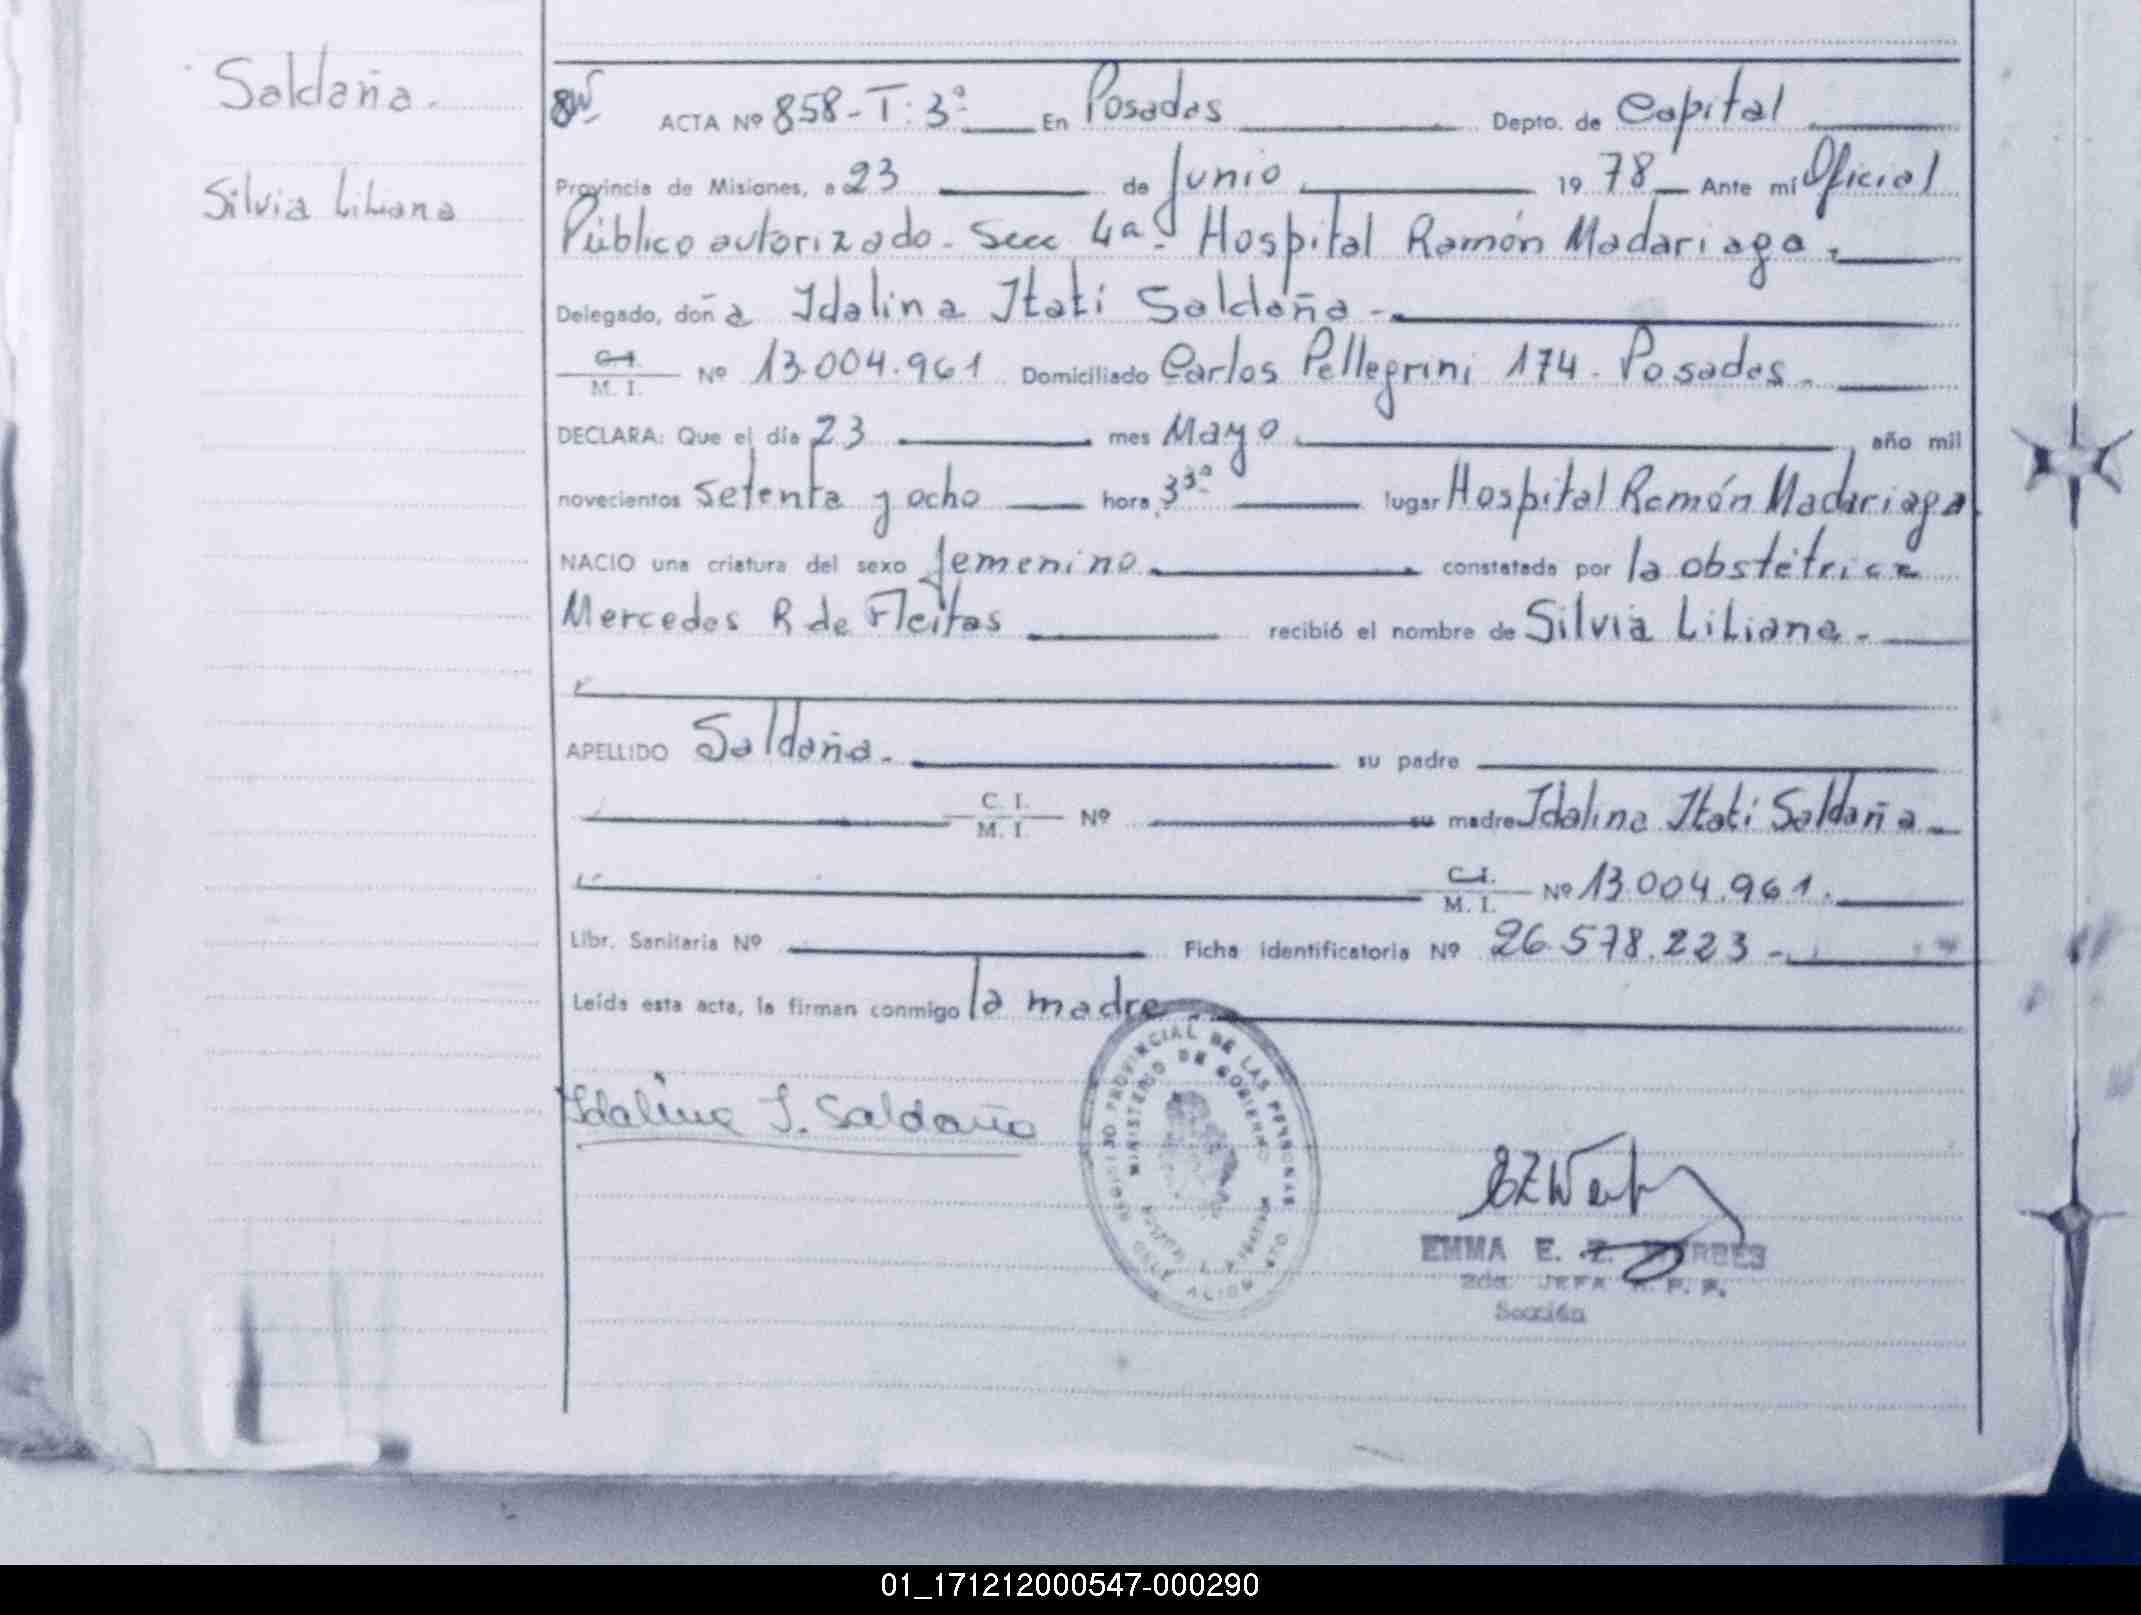 Saldaña.
Silvia Liliana
ACTA Nº 858-T: 3º En Posadas Depto. de Capital
Provincia de Misiones, a 23 de Junio 19 78 Ante mí Oficial
Público autorizado. Secc 4ª. Hospital Ramón Madariaga.
Delegado, doña Idalina Itatí Saldaña.-
C.I. M. I. Nº 13.004.961 Domiciliado Carlos Pellegrini 174. Posadas.
DECLARA: Que el día 23 mes Mayo año mil
novecientos setenta y ocho hora 3 lugar Hospital Ramón Madariaga
NACIO una criatura del sexo femenino constatada por la obstétrica
Mercedes R de Fleitas recibió el nombre de Silvia Liliana.-
APELLIDO Saldaña. su padre
C. I. M. I. Nº su madre Idalina Itatí Saldaña
C.I. M. I. Nº 13.004.961.
Libr. Sanitaria Nº Ficha identificatoria Nº 26.578.223-
Leída esta acta, la firman conmigo la madre
Idalina I. Saldaña
REGISTRO PROVINCIAL DE LAS PERSONAS
MINISTERIO DE GOBIERNO
EMMA E. Z.
2da. JEFA R. P. P.
Sección
01_171212000547-000290